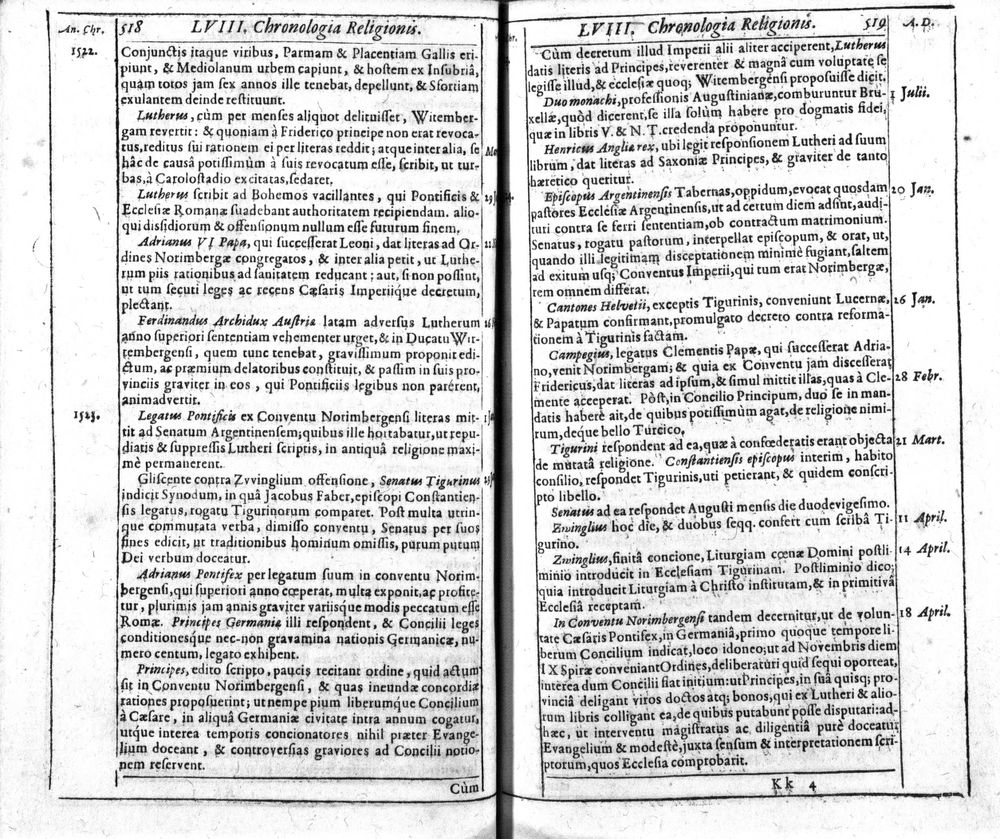 An. Chr. 518 LVIII. Chronologia Religionis.
1522. Conjunctis itaque viribus, Parmam & Placentiam Gallis eri-
piunt, & Mediolanum urbem capiunt, & hostem ex Insubriâ,
quam totos jam sex annos ille tenebat, depellunt, & Sfortiam
exulantem deinde restituunt.
Lutherus, cùm per menses aliquot delituisset, Witember-
gam revertit: & quoniam à Friderico principe non erat revoca-
tus, reditus sui rationem ei per literas reddit; atque inter alia, se
hâc de causâ potissimùm à suis revocatum esse, scribit, ut tur-
bas, à Carolostadio excitatas, sedaret.
Lutherus scribit ad Bohemos vacillantes, qui Pontificis &
Ecclesiæ Romanæ suadebant authoritatem recipiendam. alio-
qui dissidiorum & offensionum nullum esse futurum finem.
Adrianus VI Papa, qui successerat Leoni, dat literas ad Or-
dines Norimbergæ congregatos, & inter alia petit, ut Luthe-
rum piis rationibus ad sanitatem reducant: aut, si non possint,
ut tum secuti leges ac recens Cæsaris Imperiique decretum,
plectant.
Ferdinandus Archidux Austriæ latam adversus Lutherum
anno superiori sententiam vehementer urget, & in Ducatu Wir-
tembergensi, quem tunc tenebat, gravissimum proponit edi-
ctum, ac præmium delatoribus constituit, & passim in suis pro-
vinciis graviter in eos, qui Pontificiis legibus non parérent,
animadvertit.
1523. Legatus Pontificis ex Conventu Norimbergensi literas mit-
tit ad Senatum Argentinensem; quibus ille hortabatur, ut repu-
diatis & suppressis Lutheri scriptis, in antiquâ religione maxi-
mè permanerent.
Gliscente contra Zvvinglium offensione, Senatus Tigurinus
indicit Synodum, in quâ Jacobus Faber, episcopi Constantien-
sis legatus, rogatu Tigurinorum comparet. Post multa utrin-
que commutata verba, dimisso conventu, Senatus per suos
fines edicit, ut traditionibus hominum omissis, purum putum
Dei verbum doceatur.
Adrianus Pontifex per legatum suum in conventu Norim-
bergensi, qui superiori anno cœperat, multa exponit, ac profite-
tur, plurimis jam annis graviter variisque modis peccatum esse
Romæ. Principes Germaniæ illi respondent, & Concilii leges
conditionesque nec-non gravamina nationis Germanicæ, nu-
mero centum, legato exhibent.
Principes, edito scripto, paucis recitant ordine, quid actum
sit in Conventu Norimbergensi, & quas ineundæ concordiæ
rationes proposuerint; ut nempe pium liberumque Concilium
à Cæsare, in aliquâ Germaniæ civitate intra annum cogatur,
utque interea temporis concionatores nihil præter Evange-
lium doceant, & controversias graviores ad Concilii notio-
nem reservent.
Cùm
LVIII. Chronologia Religionis. 519 A. D.
Cùm decretum illud Imperii alii aliter acciperent, Lutherus
datis literis ad Principes, reverenter & magnâ cum voluptate se
legisse illud, & ecclesiæ quoq; Witembergensi proposuisse dicit.
Duo monachi, professionis Augustinianæ, comburuntur Bru- 1 Julii.
xellæ, quòd dicerent, se illa solùm habere pro dogmatis fidei,
quæ in libris V. & N. T. credenda proponuntur.
Henricus Angliæ rex, ubi legit responsionem Lutheri ad suum
librum, dat literas ad Saxoniæ Principes, & graviter de tanto
hæretico queritur.
Episcopus Argentinensis Tabernas, oppidum, evocat quosdam 20 Jan.
pastores Ecclesiæ Argentinensis, ut ad certum diem adsint, audi-
turi contra se ferri sententiam, ob contractum matrimonium.
Senatus, rogatu pastorum, interpellat episcopum, & orat, ut,
quando illi legitimam disceptationem minimè fugiant, saltem
ad exitum usq; Conventus Imperii, qui tum erat Norimbergæ,
rem omnem differat.
Cantones Helvetii, exceptis Tigurinis, conveniunt Lucernæ, 26 Jan.
& Papatum confirmant, promulgato decreto contra reforma-
tionem à Tigurinis factam.
Campegius, legatus Clementis Papæ, qui successerat Adria-
no, venit Norimbergam; & quia ex Conventu jam discesserat
Fridericus, dat literas ad ipsum, & simul mittit illas, quas à Cle- 28 Febr.
mente acceperat. Pòst, in Concilio Principum, duo se in man-
datis habere ait, de quibus potissimùm agat, de religione nimi-
rum, deque bello Turcico.
Tigurini respondent ad ea, quæ à confœderatis erant objecta 21 Mart.
de mutatâ religione. Constantiensis episcopus interim, habito
consilio, respondet Tigurinis, uti petierant, & quidem conscri-
pto libello.
Senatus ad ea respondet Augusti mensis die duodevigesimo.
Zwinglius hoc die, & duobus seqq. confert cum scribâ Ti- 11 April.
gurino.
Zwinglius, finitâ concione, Liturgiam cœnæ Domini postli- 14 April.
minio introducit in Ecclesiam Tigurinam. Postliminio dico;
quia introducit Liturgiam à Christo institutam, & in primitivâ
Ecclesiâ receptam.
In Conventu Norimbergensi tandem decernitur, ut de volun- 18 April.
tate Cæsaris Pontifex, in Germaniâ, primo quoque tempore li-
berum Concilium indicat, loco idoneo; ut ad Novembris diem
IX Spiræ conveniant Ordines, deliberaturi quid sequi oporteat,
interea dum Concilii fiat initium: ut Principes, in suâ quisq; pro-
vinciâ deligant viros doctos atq; bonos, qui ex Lutheri & alio-
rum libris colligant ea, de quibus putabunt posse disputari: ad-
hæc, ut interventu magistratus ac diligentiâ purè doceatur
Evangelium & modestè, juxta sensum & interpretationem scri-
ptorum, quos Ecclesia comprobarit.
Kk 4